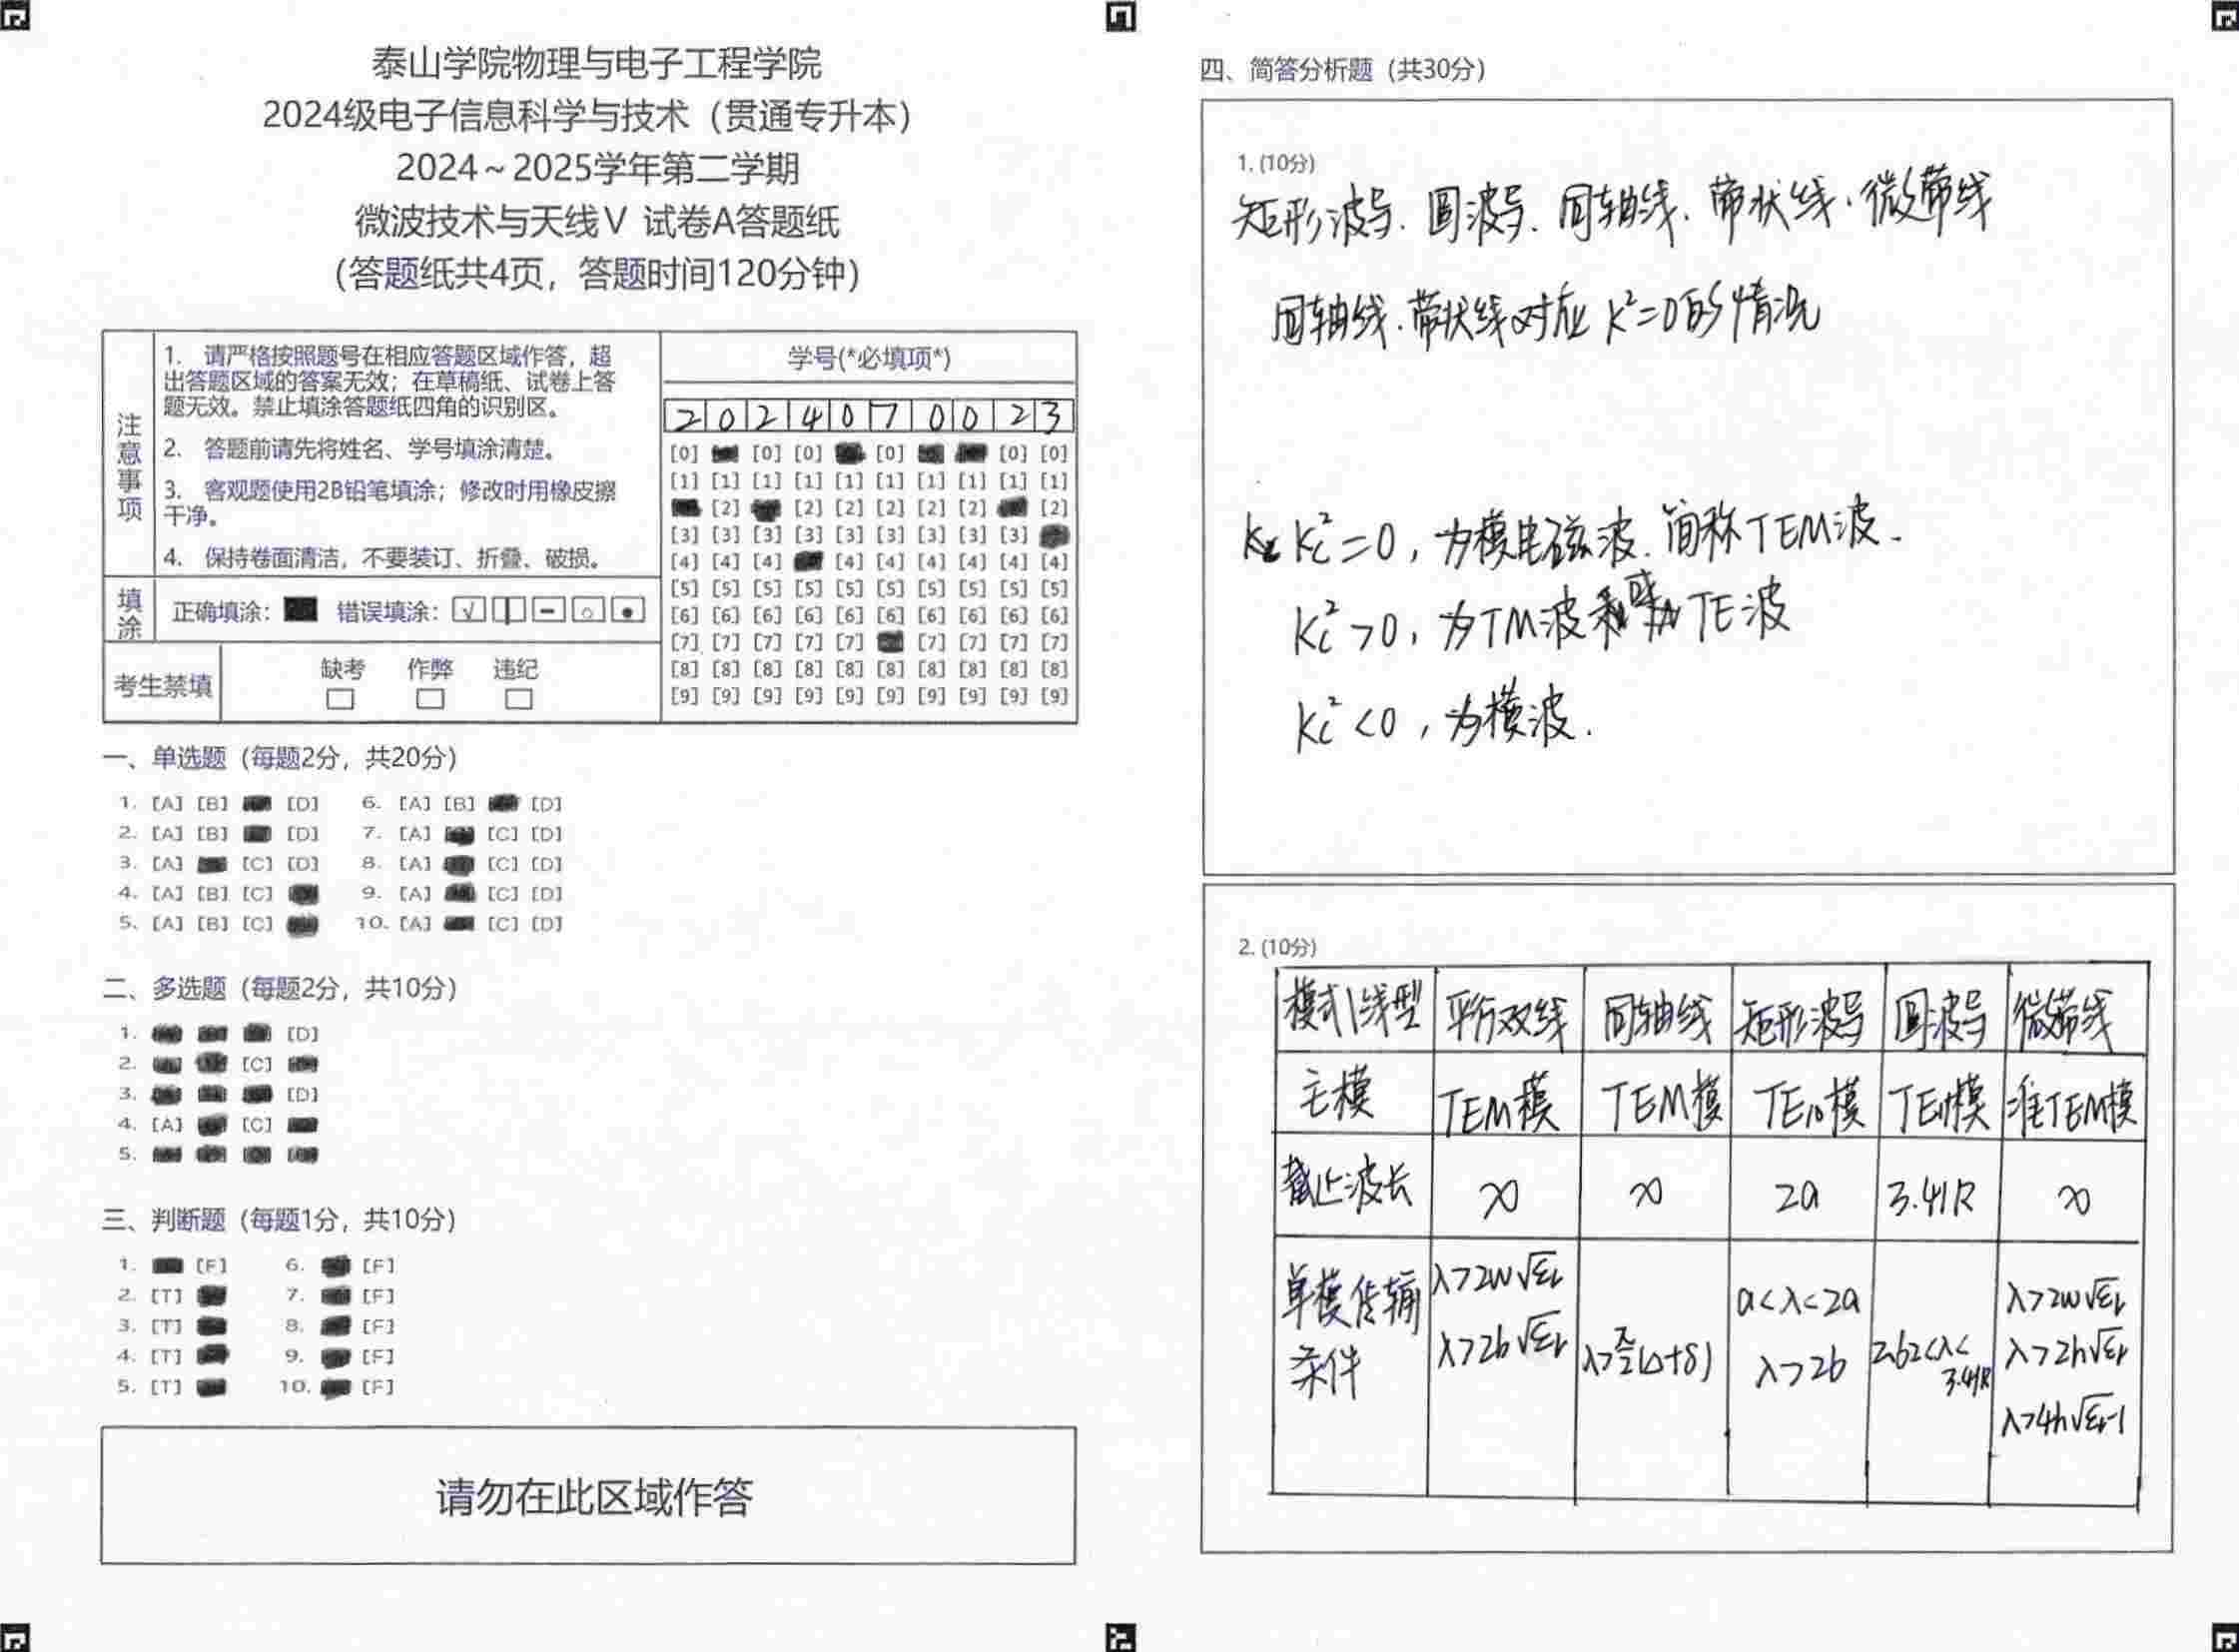 泰山学院物理与电子工程学院
2024级电子信息科学与技术（贯通专升本）
2024～2025学年第二学期
微波技术与天线Ⅴ 试卷A答题纸
（答题纸共4页，答题时间120分钟）
注意事项
1. 请严格按照题号在相应答题区域作答，超
出答题区域的答案无效；在草稿纸、试卷上答
题无效。禁止填涂答题纸四角的识别区。
2. 答题前请先将姓名、学号填涂清楚。
3. 客观题使用2B铅笔填涂；修改时用橡皮擦
干净。
4. 保持卷面清洁，不要装订、折叠、破损。
填涂
正确填涂： 错误填涂：
考生禁填
缺考 作弊 违纪
学号(*必填项*)
2 0 2 4 0 7 0 0 2 3
[0] [0] [0] [0] [0] [0]
[1] [1] [1] [1] [1] [1] [1] [1] [1] [1]
[2] [2] [2] [2] [2] [2] [2]
[3] [3] [3] [3] [3] [3] [3] [3] [3]
[4] [4] [4] [4] [4] [4] [4] [4] [4]
[5] [5] [5] [5] [5] [5] [5] [5] [5] [5]
[6] [6] [6] [6] [6] [6] [6] [6] [6] [6]
[7] [7] [7] [7] [7] [7] [7] [7] [7]
[8] [8] [8] [8] [8] [8] [8] [8] [8] [8]
[9] [9] [9] [9] [9] [9] [9] [9] [9] [9]
一、单选题（每题2分，共20分）
1. [A] [B] [D] 6. [A] [B] [D]
2. [A] [B] [D] 7. [A] [C] [D]
3. [A] [C] [D] 8. [A] [C] [D]
4. [A] [B] [C] 9. [A] [C] [D]
5. [A] [B] [C] 10. [A] [C] [D]
二、多选题（每题2分，共10分）
1. [D]
2. [C]
3. [D]
4. [A] [C]
5.
三、判断题（每题1分，共10分）
1. [F] 6. [F]
2. [T] 7. [F]
3. [T] 8. [F]
4. [T] 9. [F]
5. [T] 10. [F]
请勿在此区域作答
四、简答分析题（共30分）
1. (10分)
矩形波导. 圆波导. 同轴线. 带状线. 微带线
同轴线. 带状线对应 K²=0的情况
Kc²=0, 为横电磁波. 简称TEM波.
Kc²>0, 为TM波或TE波
Kc²<0, 为横波.
2. (10分)
模式\线型 平行双线 同轴线 矩形波导 圆波导 微带线
主模 TEM模 TEM模 TE₁₀模 TE₁₁模 准TEM模
截止波长 ∞ ∞ 2a 3.41R ∞
单模传输条件 λ>2w√εr λ>2b√εr λ>π/2(D+δ) a<λ<2a λ>2b 2.62<λ<3.41R λ>2w√εr λ>2h√εr λ>4h√εr-1